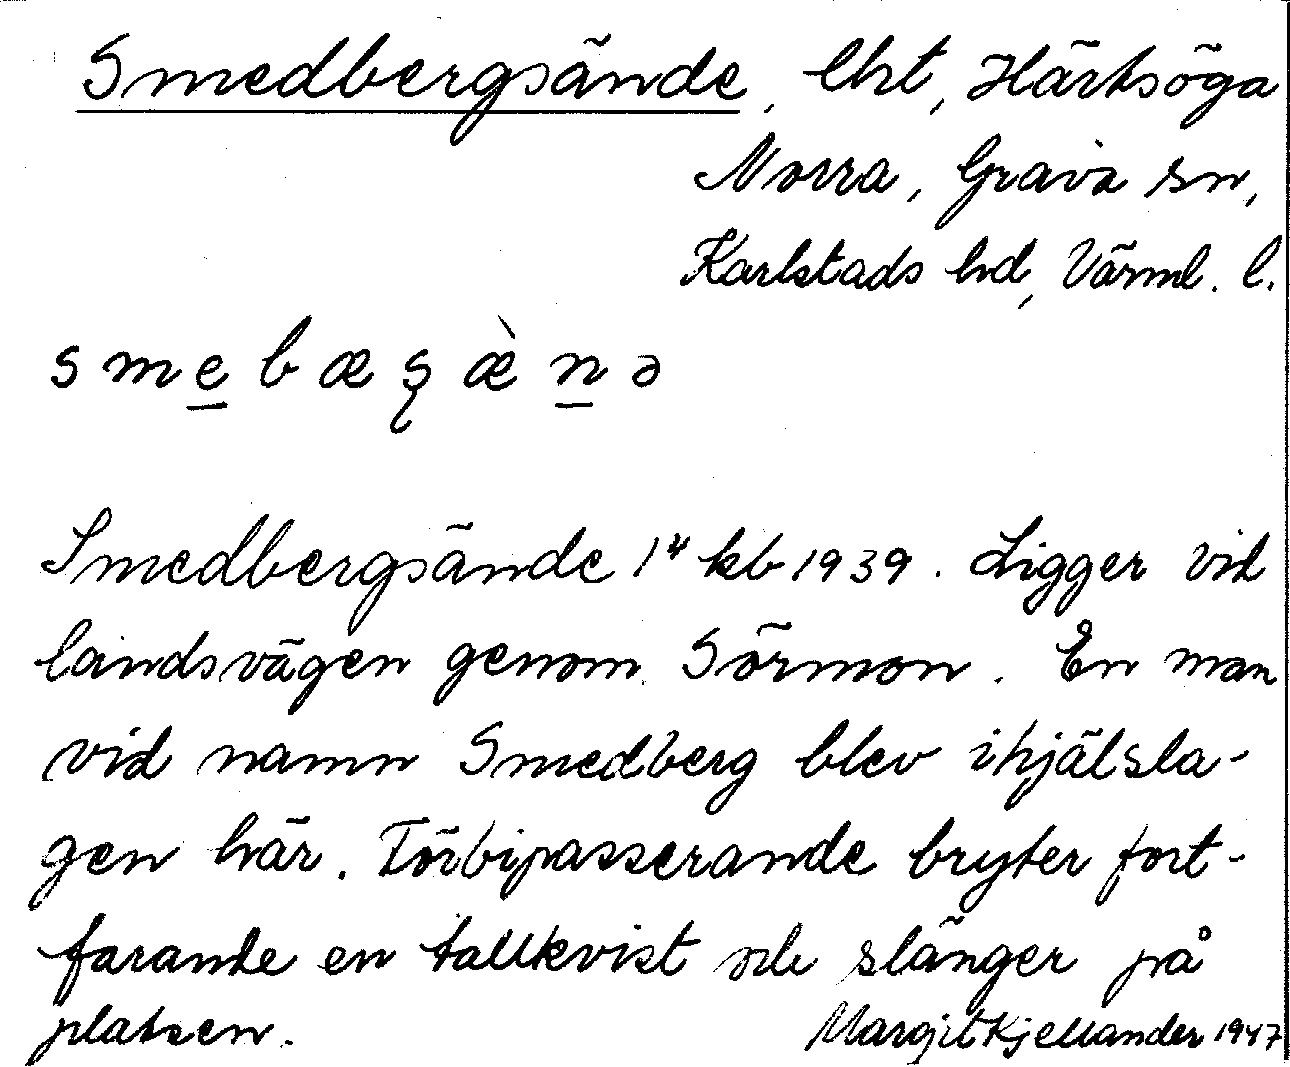 Smedbergsände, lht, Härtsöga
Norra, Grava sn,
Karlstads hd, Värml. l.
sme̲bæʂæ̀n̲ə
Smedbergsände 14 kb 1939. Ligger vid
landsvägen genom Sörmon. En man
vid namn Smedberg blev ihjälsla-
gen här. Förbipasserande bryter fort-
farande en tallkvist och slänger på
platsen. Margit Kjellander 1947